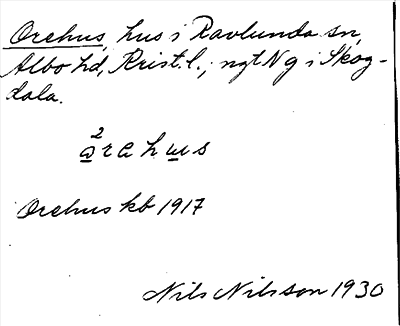 Orehus, hus i Ravlunda sn,
Albo hd, Krist. l., ngt N g i Skog-
dala.
2
a r a h u s
Orehus kb 1917
Nils Nilsson 1930